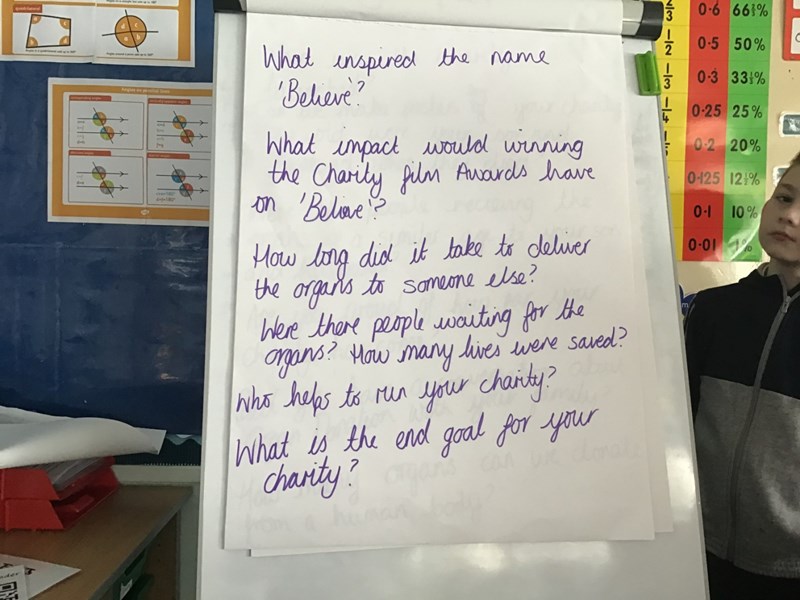 What inspired the name
'Believe'?
What impact would winning
the Charity film Awards have
on 'Believe'?
How long did it take to deliver
the organs to someone else?
Were there people waiting for the
organs? How many lives were saved?
Who helps to run your charity?
What is the end goal for your
charity?
2/3 0.6 66⅔%
1/2 0.5 50%
1/3 0.3 33⅓%
1/4 0.25 25%
0.2 20%
0.125 12½%
0.1 10%
0.01 1%